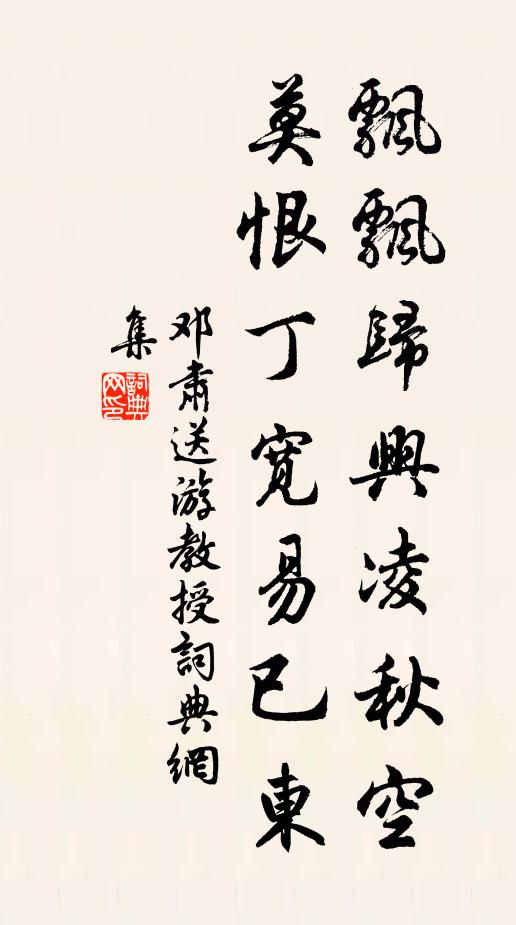 飄飄歸興凌秋空
莫恨丁寬易已東
邓肅送游教授詞典網
集
詞典網印